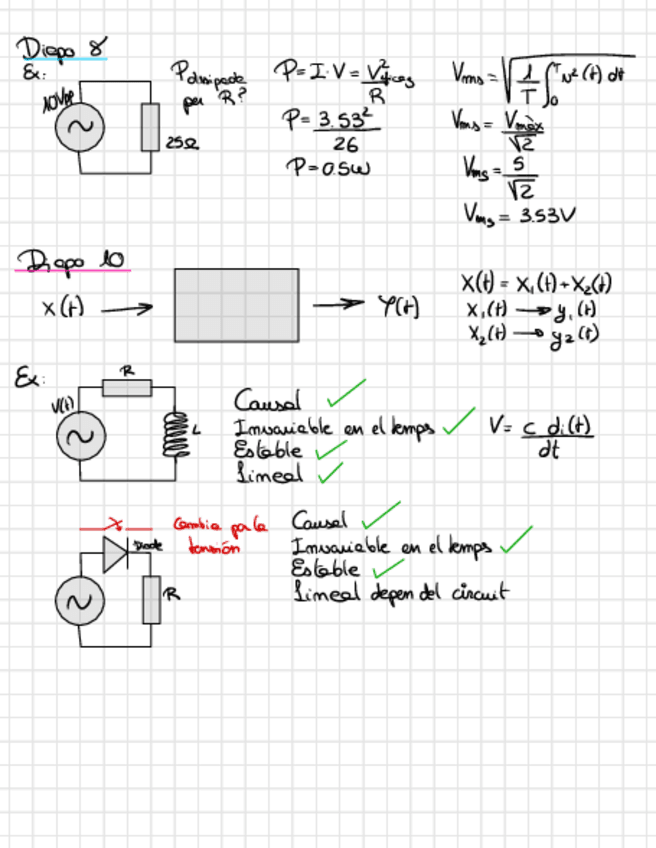 Diapo 8
Ex:
10Vpp
25Ω
P dissipada
per R?
P = I · V = V²eficaç / R
P = 3.53² / 26
P = 0.5W
Vrms = √(1/T ∫₀ᵀ v²(t) dt)
Vrms = Vmàx / √2
Vrms = 5 / √2
Vrms = 3.53V
Diapo 10
X(t) → → Y(t)
X(t) = X₁(t) + X₂(t)
X₁(t) → y₁(t)
X₂(t) → y₂(t)
Ex:
R
V(t)
L
Causal ✓
Invariable en el temps ✓
Estable ✓
Lineal ✓
V = c di(t) / dt
Cambia por la
tensión
Diode
R
Causal ✓
Invariable en el temps ✓
Estable ✓
Lineal depen del circuit